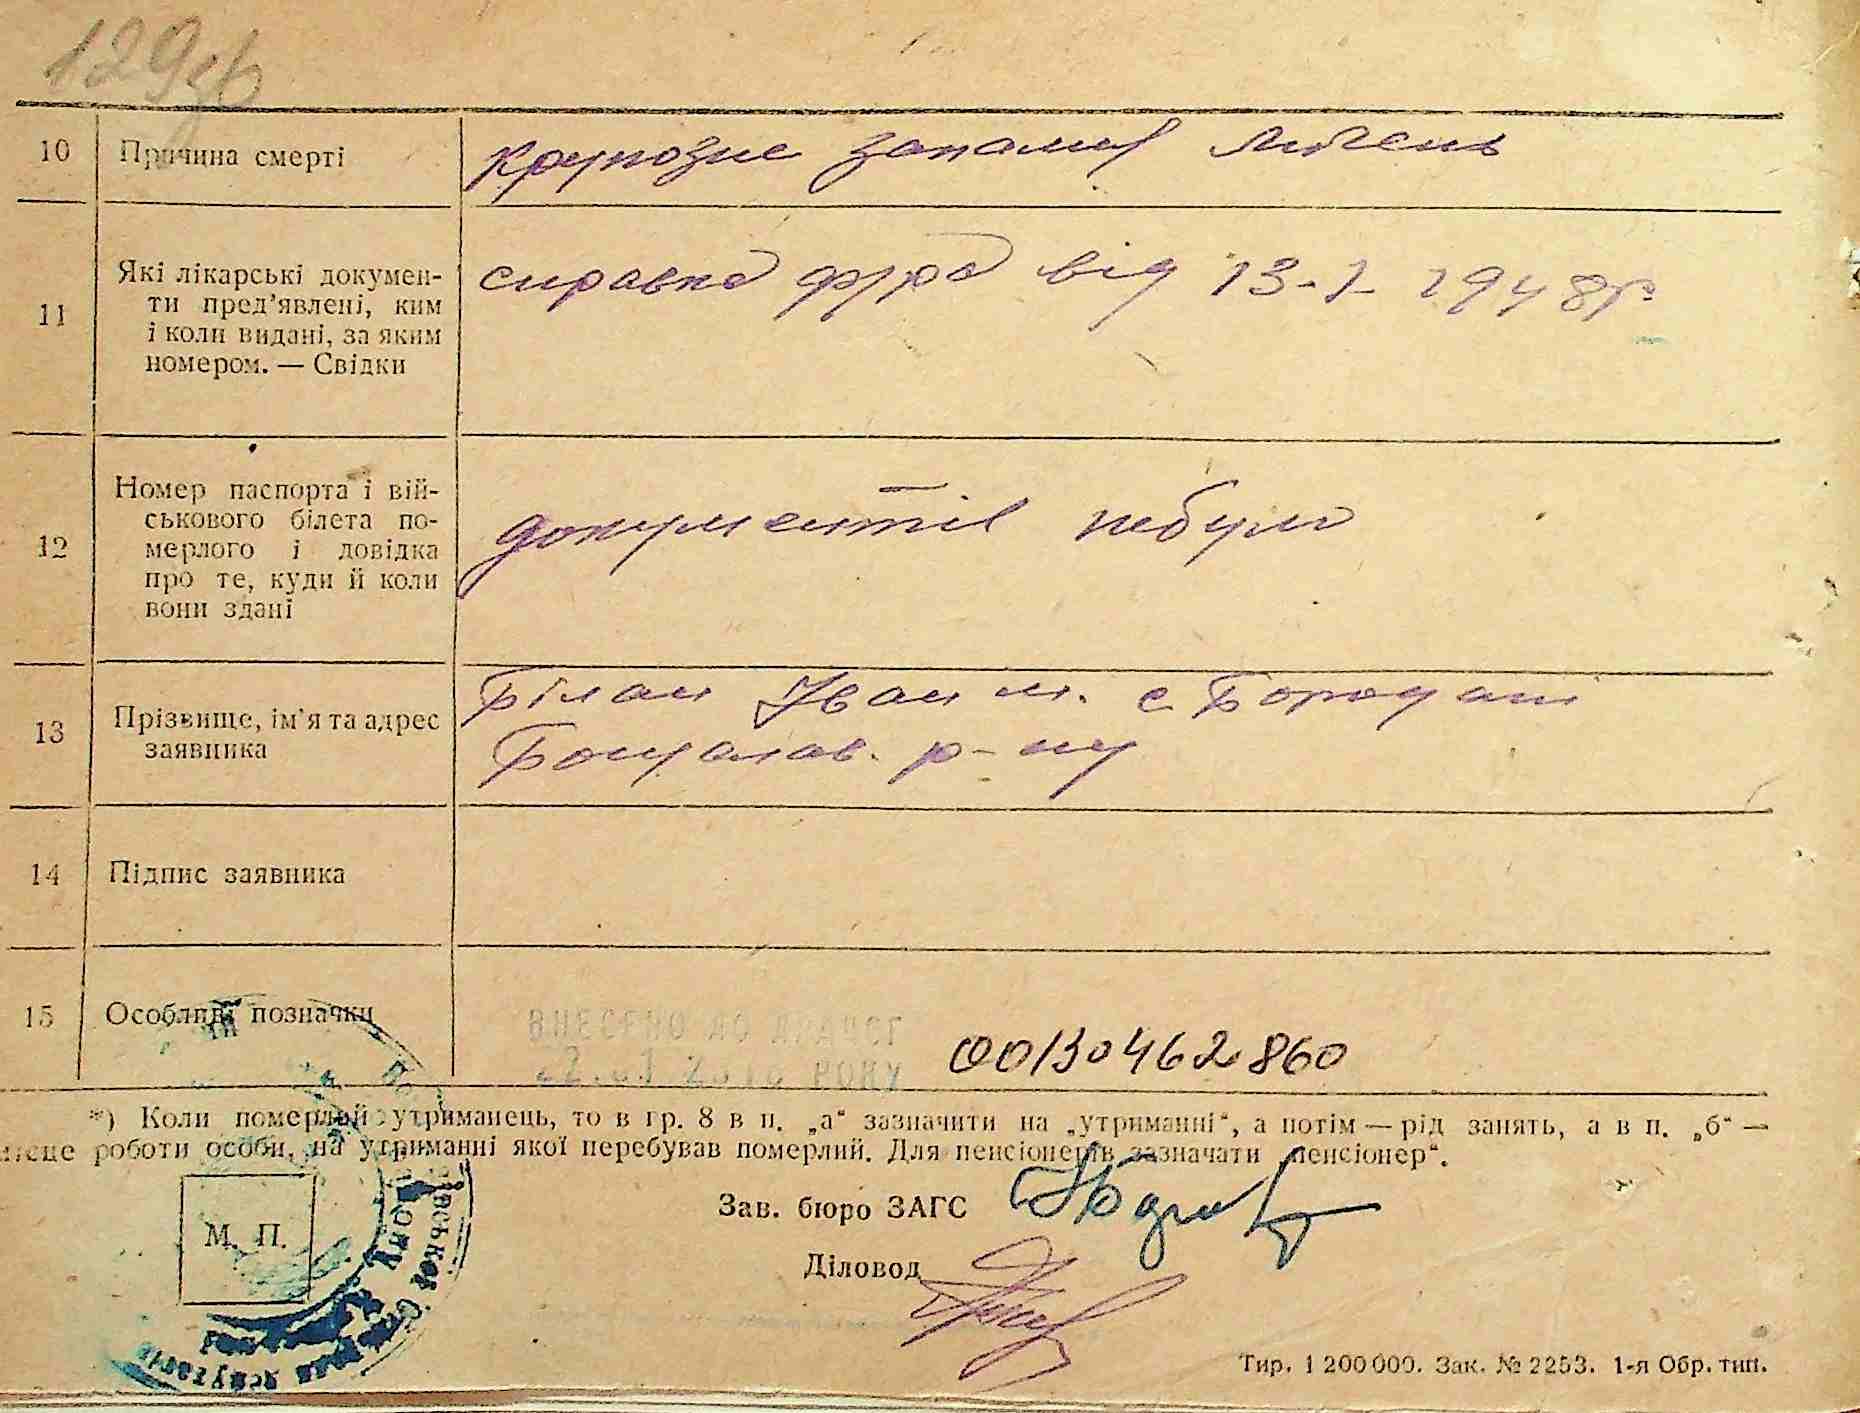 129зв
10 Причина смерті крупозне запаленя легень
11 Які лікарські докумен-
ти пред’явлені, ким
і коли видані, за яким
номером. — Свідки
справка від 13-I- 1948р
12 Номер паспорта і вій-
ськового білета по-
мерлого і довідка
про те, куди й коли
вони здані
документів небуло
13 Прізвище, ім’я та адрес
заявника
Білан Іван м. с Бородані
р-ну
14 Підпис заявника
15 Особливі позначки
ВНЕСЕНО ДО ДРАЦСГ
РОКУ
00130462860
*) Коли померлой утриманець, то в гр. 8 в п. „а“ зазначити на „утриманні“, а потім — рід занять, а в п. „б“ —
місце роботи особи, на утриманні якої перебував померлий. Для пенсіонерів зазначати „пенсіонер“.
М. П.
Зав. бюро ЗАГС
Діловод
Тир. 1 200 000. Зак. № 2253. 1-я Обр. тип.